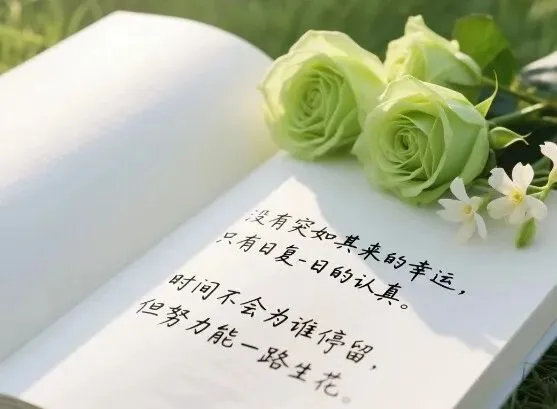 没有突如其来的幸运，
只有日复一日的认真。
时间不会为谁停留，
但努力能一路生花。